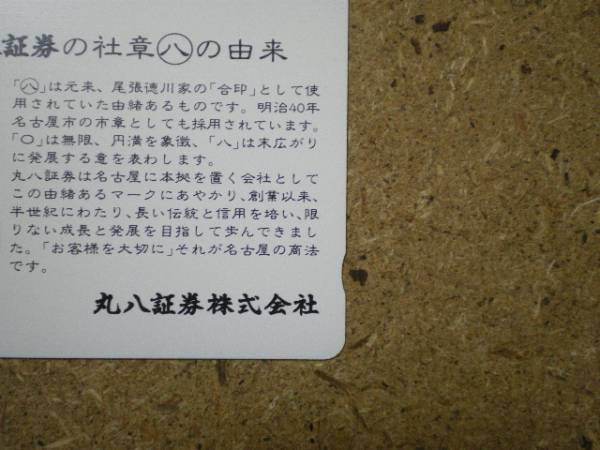 証券の社章㊇の由来
「㊇」は元来、尾張徳川家の「合印」として使
用されていた由緒あるものです。明治40年
名古屋市の市章としても採用されています。
「○」は無限、円満を象徴、「八」は末広がり
に発展する意を表わします。
丸八証券は名古屋に本拠を置く会社として
この由緒あるマークにあやかり、創業以来、
半世紀にわたり、長い伝統と信用を培い、限
りない成長と発展を目指して歩んできまし
た。「お客様を大切に」それが名古屋の商法
です。
丸八証券株式会社